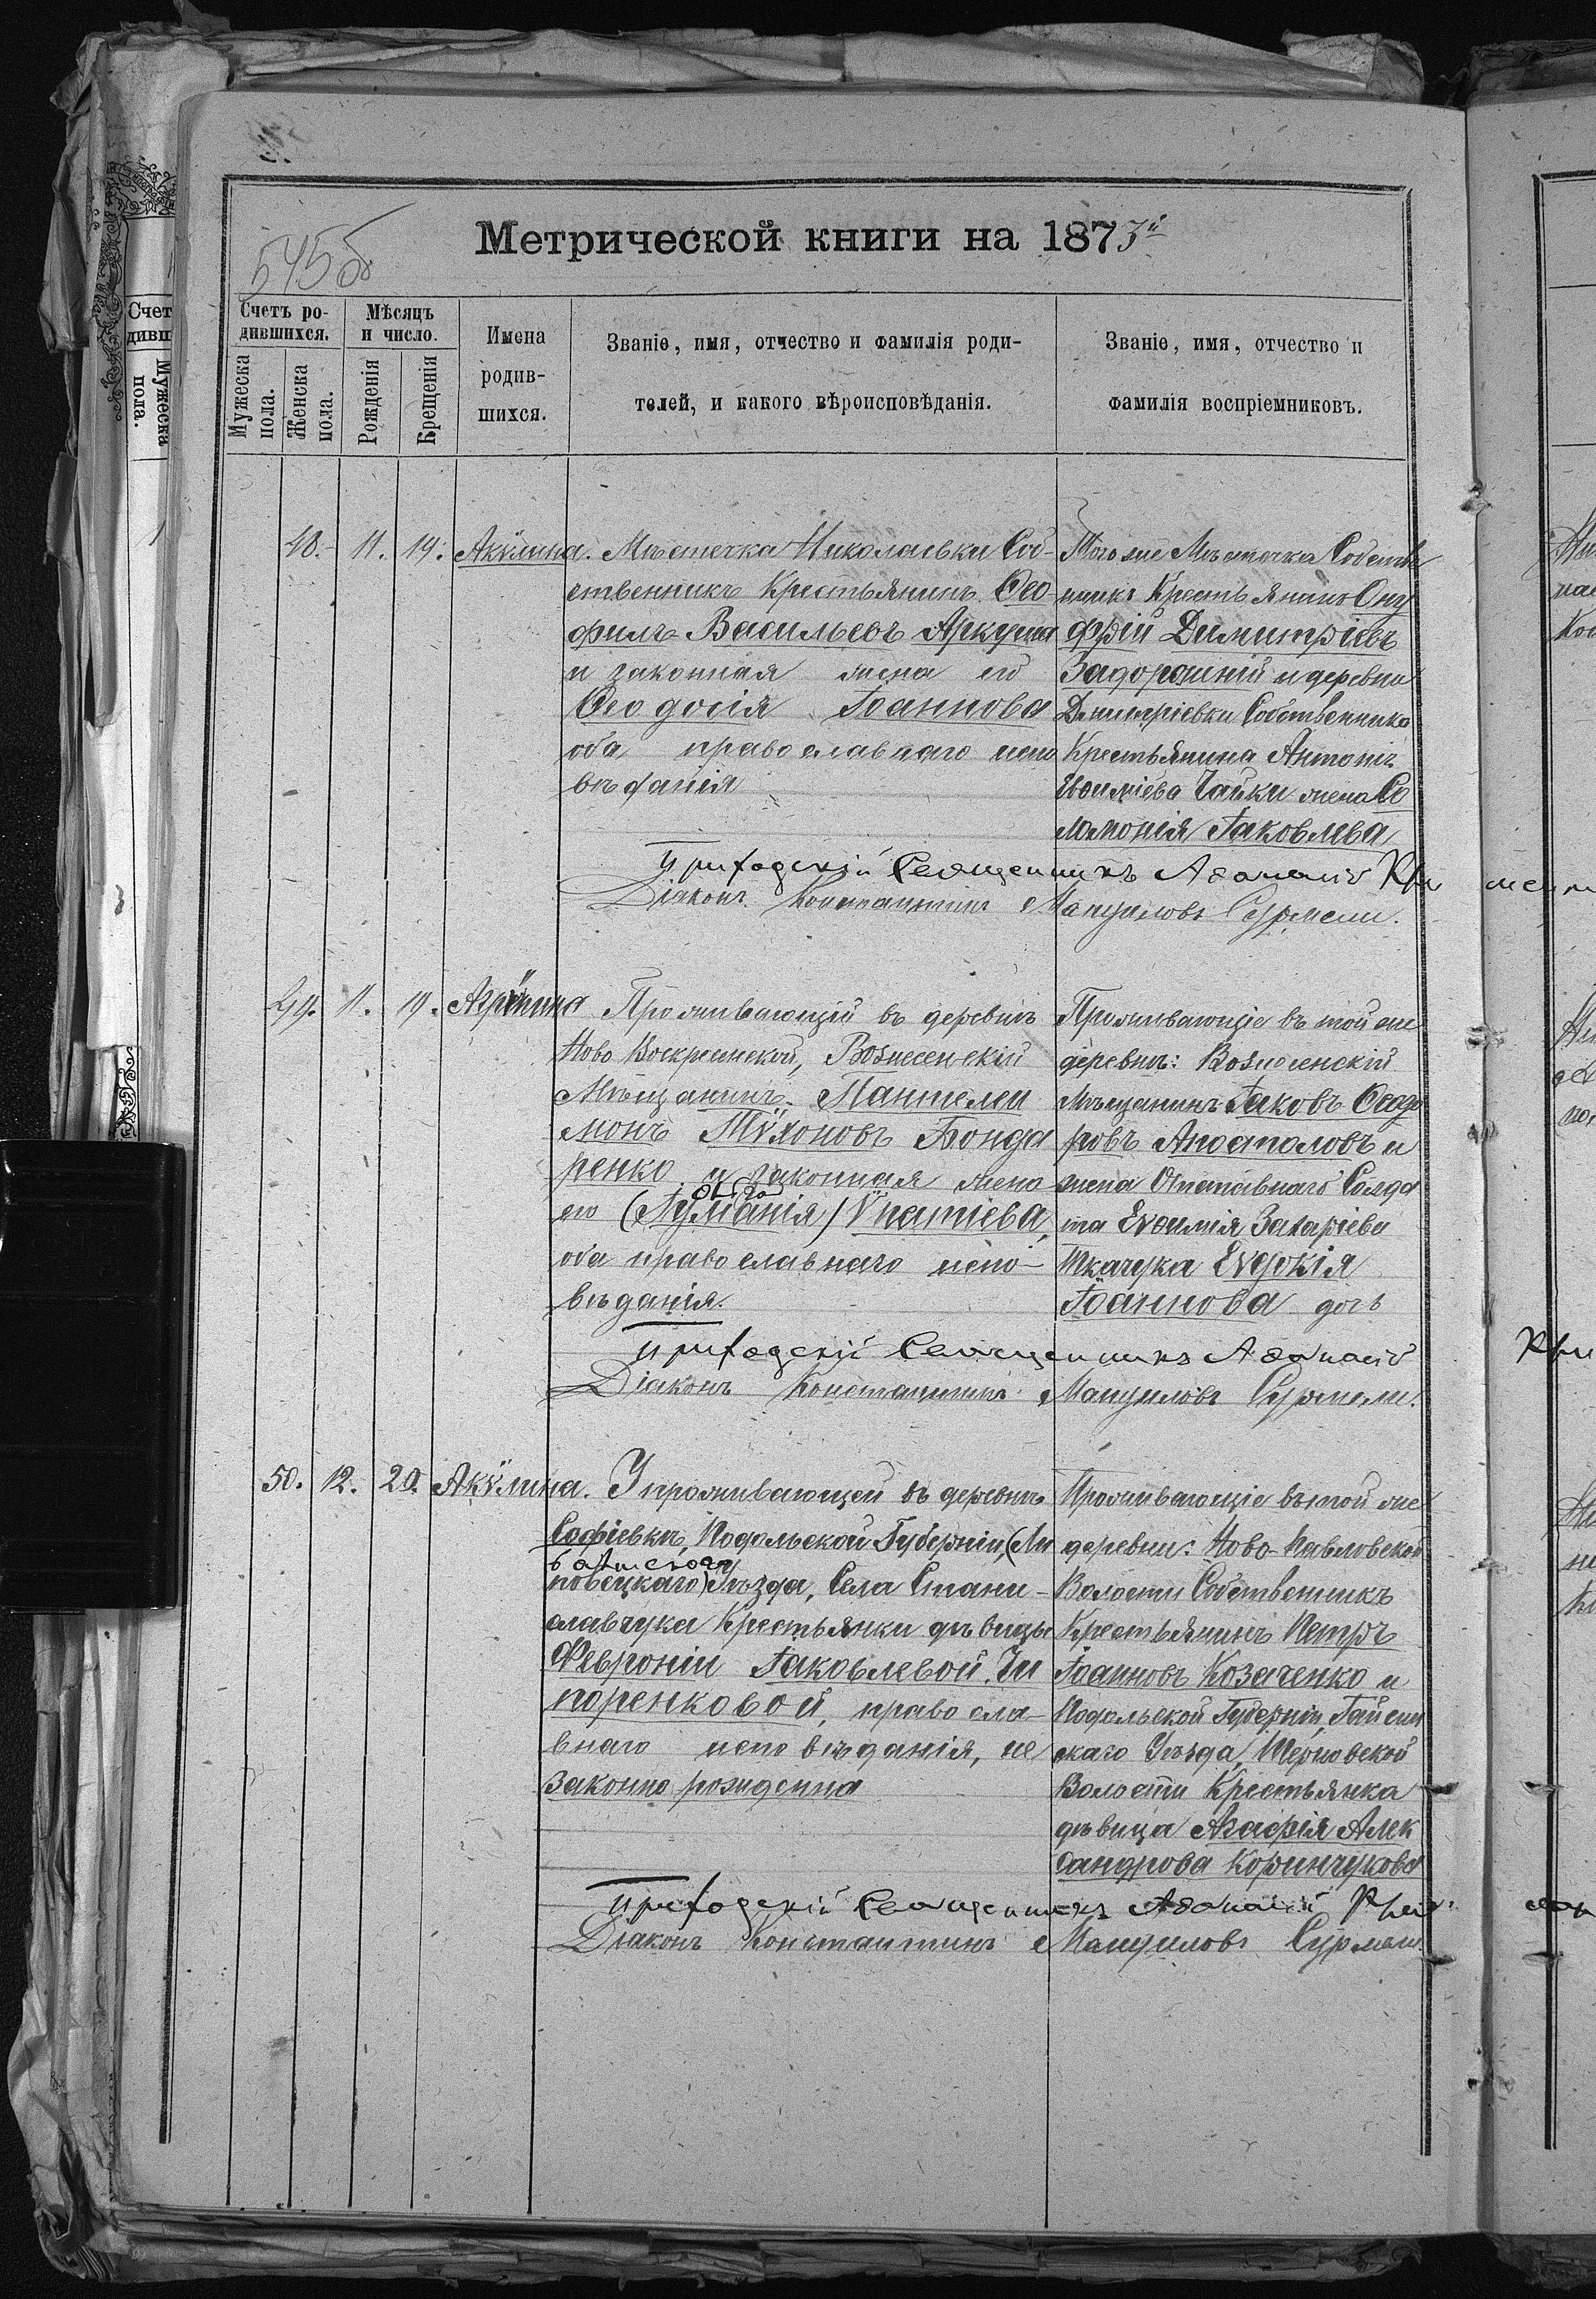 545об
Метрической книги на 1873й
Счетъ родившихся.
Мѣсяцъ и число.
Имена родив-
шихся.
Званіе, имя, отчество и фамилія роди-
телей, и какого вѣроисповѣданія.
Званіе, имя, отчество и
фамилія воспріемниковъ.
Мужеска пола.
Женска пола.
Рожденія
Крещенія
48. 11. 19. Акѵлина.
Мѣстечка Николаевки Соб-
ственникъ Крестьянинъ Ѳео-
филъ Васильевъ Аркуша
и законная жена его
Ѳеодосія Іоаннова
оба православнаго испо
вѣданія
Того же Мѣстечка Собстве
нникъ Крестьянинъ Ону
фрій Димитріевъ
Задорожній и деревни
Дмитріевки Собственника
Крестьянина Антонія
Евѳиміева Чайки жена Со
ломонія Іаковлева
Приходскій Священникъ Аѳанасій
Діаконъ Константинъ Мануиловъ Сурмели.
49. 11. 19. Агрѵпина
Проживающій въ деревнѣ
Ново Воскресенской, Вознесенскій
Мѣщанинъ Пантелеи
монъ Тѵхоновъ Бонда
ренко и законная жена
его (Іуліанія) Ѵпатіева,
оба православнаго испо-
вѣданія.
Проживающіе въ той же
деревнѣ: Вознесенскій
Мѣщанинъ Іаковъ Ѳеодо
ровъ Апостоловъ и
жена Отставнаго Солда
та Евѳимія Захаріева
Ткачука Евдокія
Іоаннова дочь
Приходскій Священникъ Аѳанасій
Діаконъ Константинъ Мануиловъ Сурмели.
50. 12. 20. Акѵлина.
У проживающей въ деревнѣ
Софіевкѣ, Подольской Губерніи, (Ли
Балтскаго
повецкаго) Уѣзда, Села Стани-
славчука Крестьянки дѣвицы
Февроніи Іаковлевой Чи
поренковой, правосла-
внаго исповѣданія, не
законно рожденна
Проживающіе въ той же
деревни: Ново-Павловской
Волости Собственникъ
Крестьянинъ Петръ
Іоанновъ Козаченко и
Подольской Губерніи, Гайсин
скаго Уѣзда, Терновской
Волости Крестьянка
дѣвица Агафія Алек
сандрова Коринчукова
Приходскій Священникъ Аѳанасій
Діаконъ Константинъ Мануиловъ Сурмели.